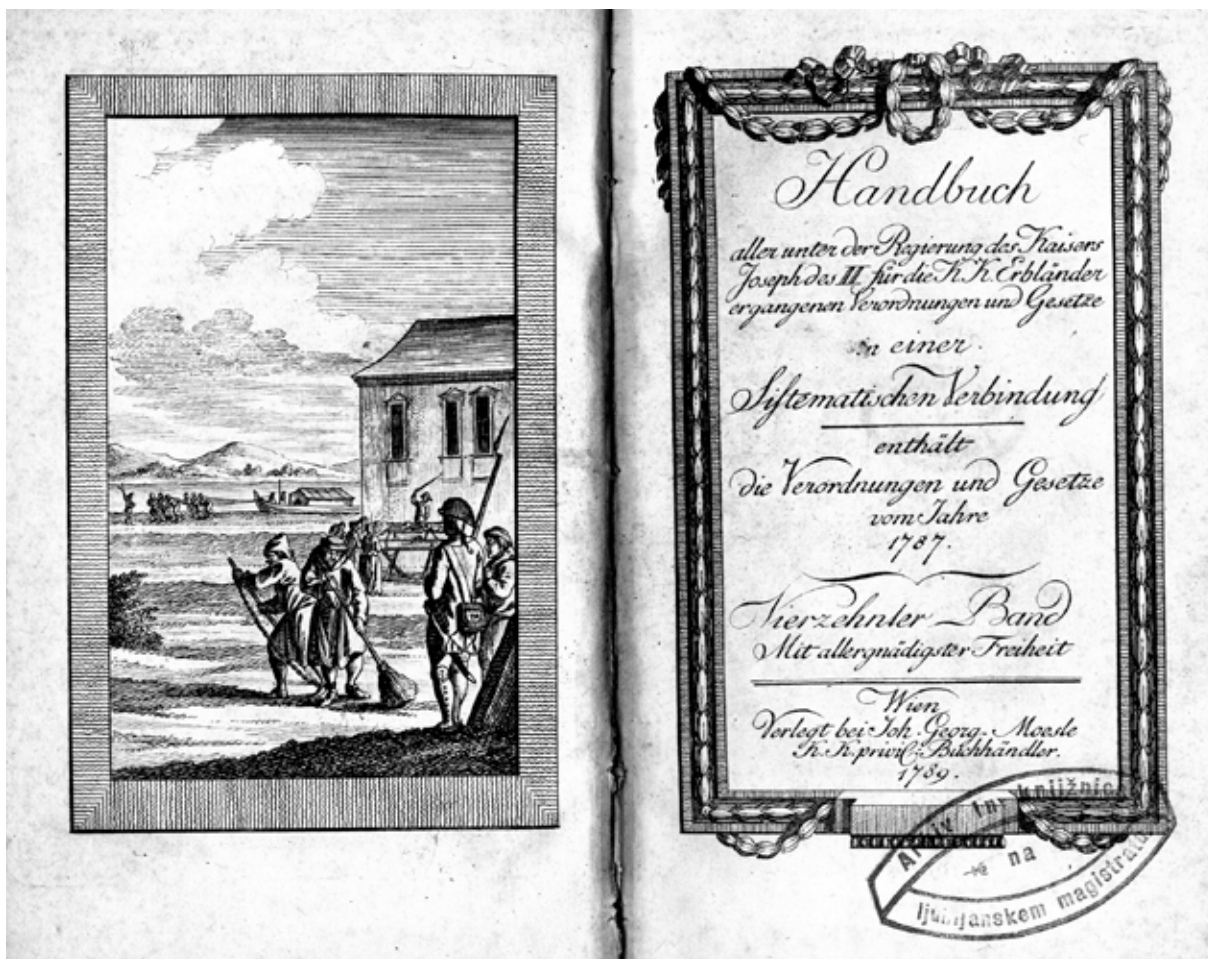 Handbuch
aller unter der Regierung des Kaisers
Joseph des II. für die K. K. Erbländer
ergangenen Verordnungen und Gesetze
in einer
Sistematischen Verbindung
enthält
die Verordnungen und Gesetze
vom Jahre
1787.
Vierzehnter Band
Mit allergnädigster Freiheit
Wien
Verlegt bei Joh. Georg. Moesle
K. K. privil. Buchhändler.
1789.
Arhiv in knjižnica
na
ljubljanskem magistratu